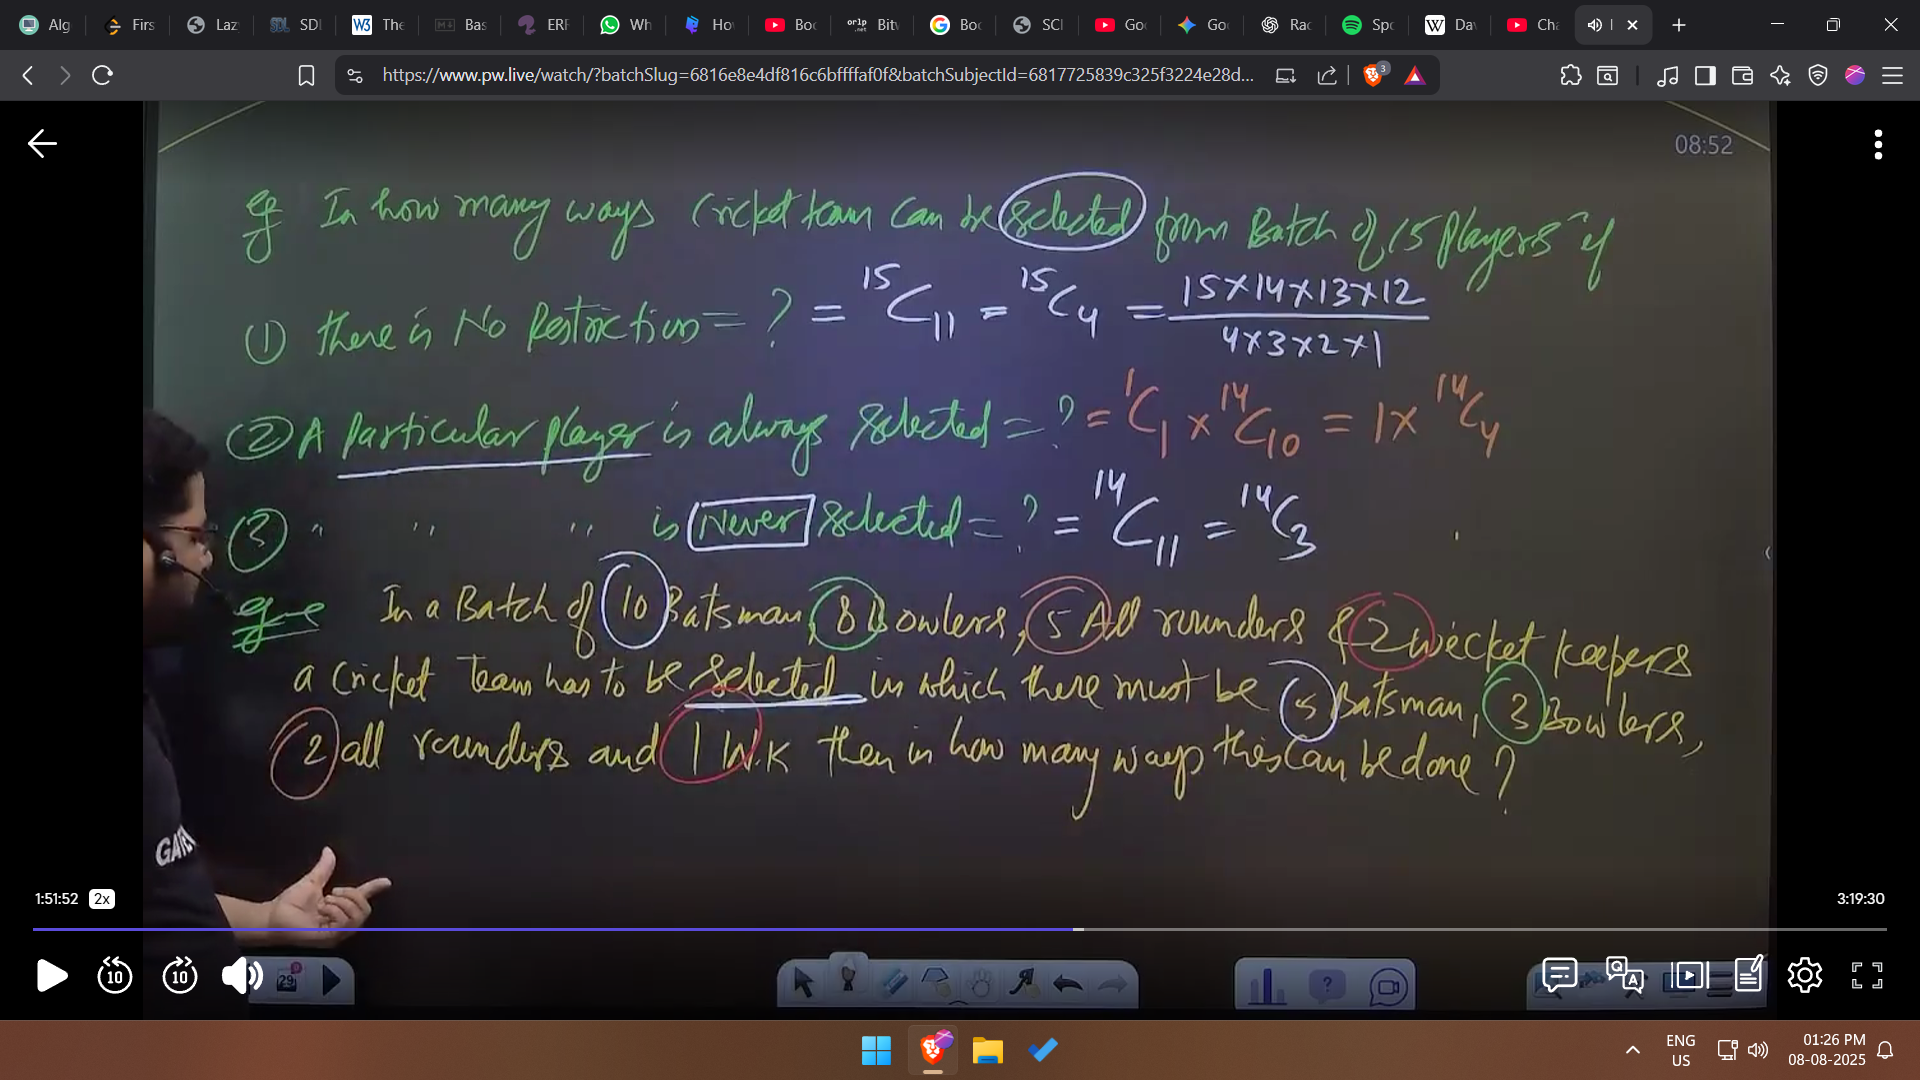 Alg
Firs
Lazy
SDI
The
Bas
ERF
Wh
Hov
Boc
Bitw
Boc
SCI
Goc
Goc
Rac
Spc
Dav
Cha
https://www.pw.live/watch/?batchSlug=6816e8e4df816c6bffffaf0f&batchSubjectId=6817725839c325f3224e28d...
3
08:52
eg In how many ways Cricket team can be selected from Batch of 15 Players if
① there is No Restriction = ? = ¹⁵C₁₁ = ¹⁵C₄ = 15×14×13×12
4×3×2×1
② A Particular player is always selected = ? = ¹C₁ × ¹⁴C₁₀ = 1× ¹⁴C₄
③ " " " is Never selected = ? = ¹⁴C₁₁ = ¹⁴C₃
eg In a Batch of 10 Batsman, 8 Bowlers, 5 All rounders & 2 wicket keepers
a Cricket Team has to be selected in which there must be 5 Batsman, 3 Bowlers,
2 all rounders and 1 W.K then in how many ways this can be done ?
GATE
1:51:52 2x
3:19:30
10
10
29
?
Q A
ENG
US
01:26 PM
08-08-2025